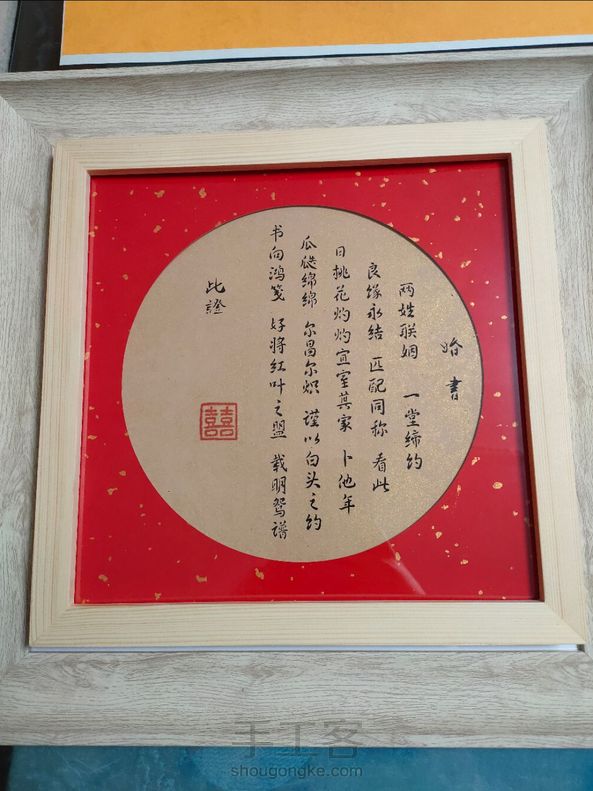 婚 書
两姓联姻 一堂缔约
良缘永结 匹配同称 看此
日桃花灼灼宜室其家 卜他年
瓜瓞绵绵 尔昌尔炽 谨以白头之约
书向鸿笺 好将红叶之盟 载明鸳谱
此證
囍
手工客
shougongke.com